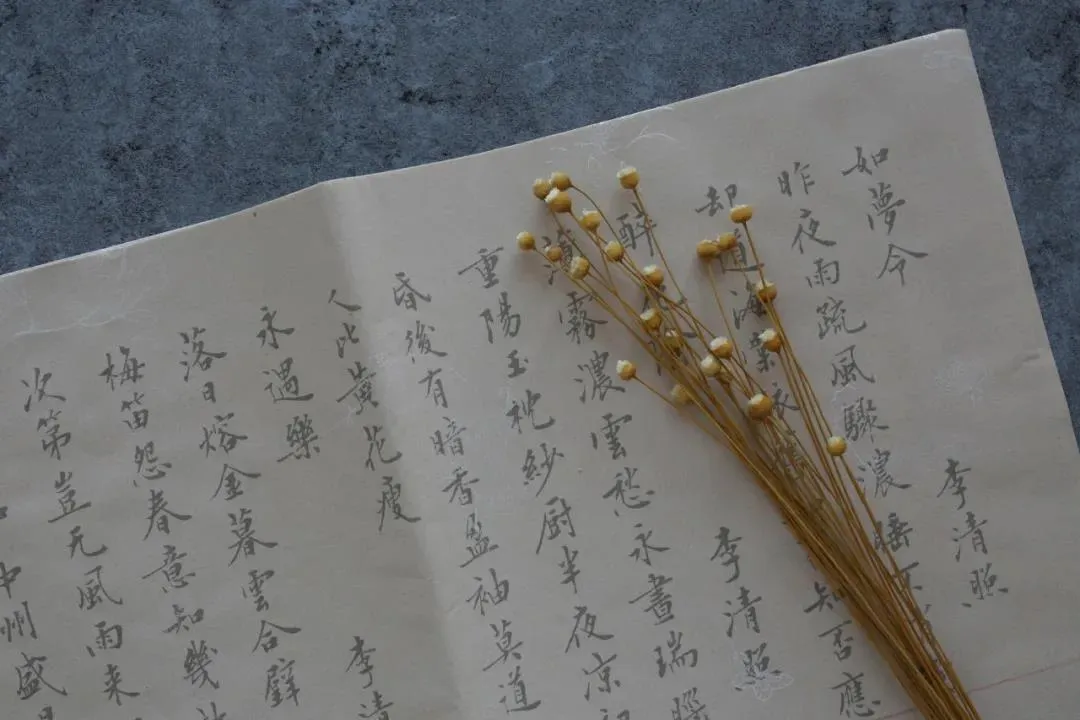 如夢令
李清照
昨夜雨疏風驟濃睡不
却道海棠依舊知否應
醉花
李清照
薄霧濃雲愁永晝瑞腦
重陽玉枕紗厨半夜凉初
昏後有暗香盈袖莫道
人比黄花瘦
永遇樂
李清
落日熔金暮雲合璧
梅笛怨春意知幾許
次第豈无風雨来
中州盛日